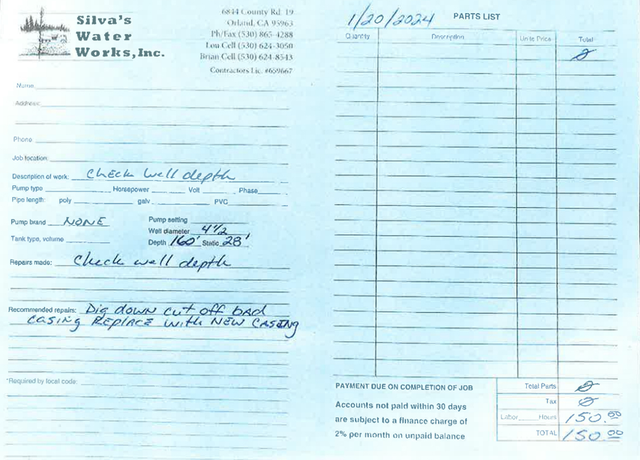 Silva's
Water
Works, Inc.
6844 County Rd. 19
Orland, CA 95963
Ph/Fax (530) 865-4288
Lou Cell (530) 624-3050
Brian Cell (530) 624-8543
Contractors Lic. #609667
Name
Address
Phone
Job location
Description of work: Check well depth
Pump type Horsepower Volt Phase
Pipe length: poly galv PVC
Pump brand NONE Pump setting
Well diameter 4 1/2
Tank type, volume Depth 160' Static 28'
Repairs made: Check well depth
Recommended repairs: Dig down cut off bad
casing Replace with New Casing
*Required by local code:
1/20/2024 PARTS LIST
Quantity Description Units Price Total
0
PAYMENT DUE ON COMPLETION OF JOB
Accounts not paid within 30 days
are subject to a finance charge of
2% per month on unpaid balance
Total Parts 0
Tax 0
Labor Hours 150.00
TOTAL 150.00